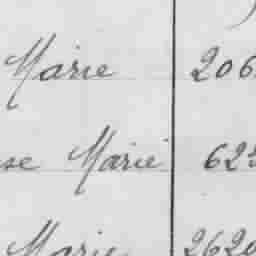 Marie 206
se Marie 623
Marie 2620